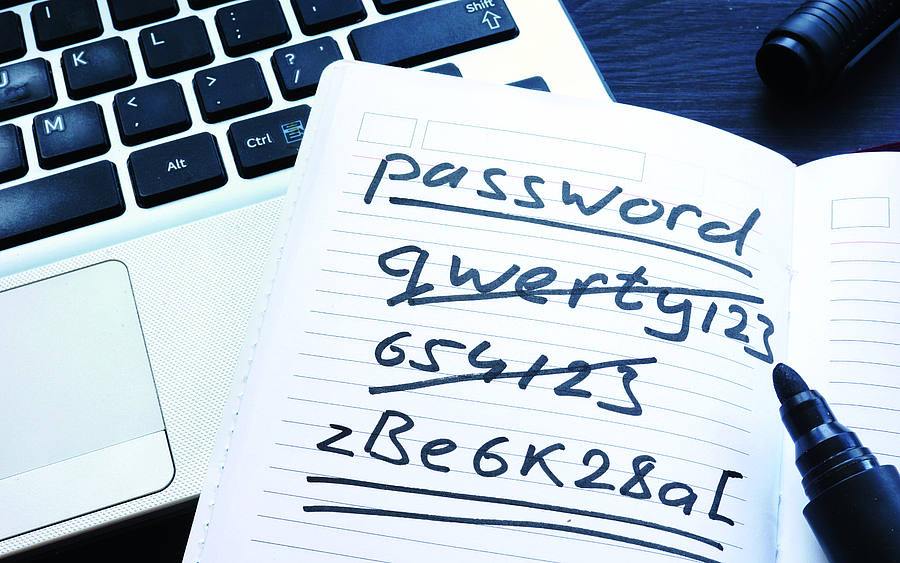 Shift
L
K
M
<
>
? /
Alt
Ctrl
password
qwerty123
654123
zBe6K28a[